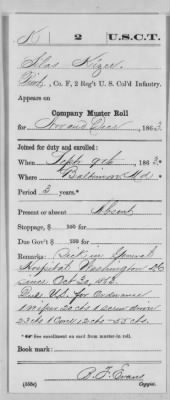 K | 2 | U.S.C.T.
Silas Kizer
Pvt, Co. F, 2 Reg't U. S. Col'd Infantry.
Appears on
Company Muster Roll
for Nov and Dec, 1863.
Joined for duty and enrolled:
When Sept 9th, 186 .*
Where Baltimore Md *
Period 3 years.*
Present or absent Absent
Stoppage, $ 100 for
Due Gov't $ 100 for
Remarks: Sick in General
Hospital Washington DC
since Oct 30, 1863.
Due U.S. for Ordnance
1 wiper 20 cts 1 screw driver
23 cts 1 Cone 12 cts - 55 cts.
* See enrollment on card from muster-in roll.
Book mark:
Copyist.